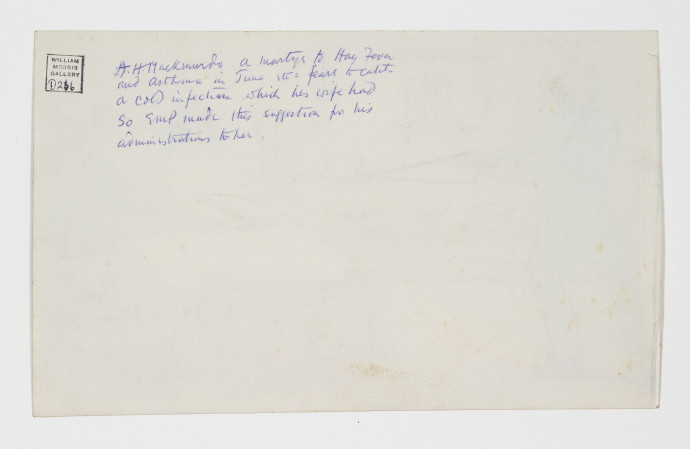 WILLIAM
MORRIS
GALLERY
D256
A. H. Mackmurdo a martyr to Hay Fever
and asthma in June etc fears to catch
a cold infection which his wife had
So EMP made this suggestion for his
administrations to her.